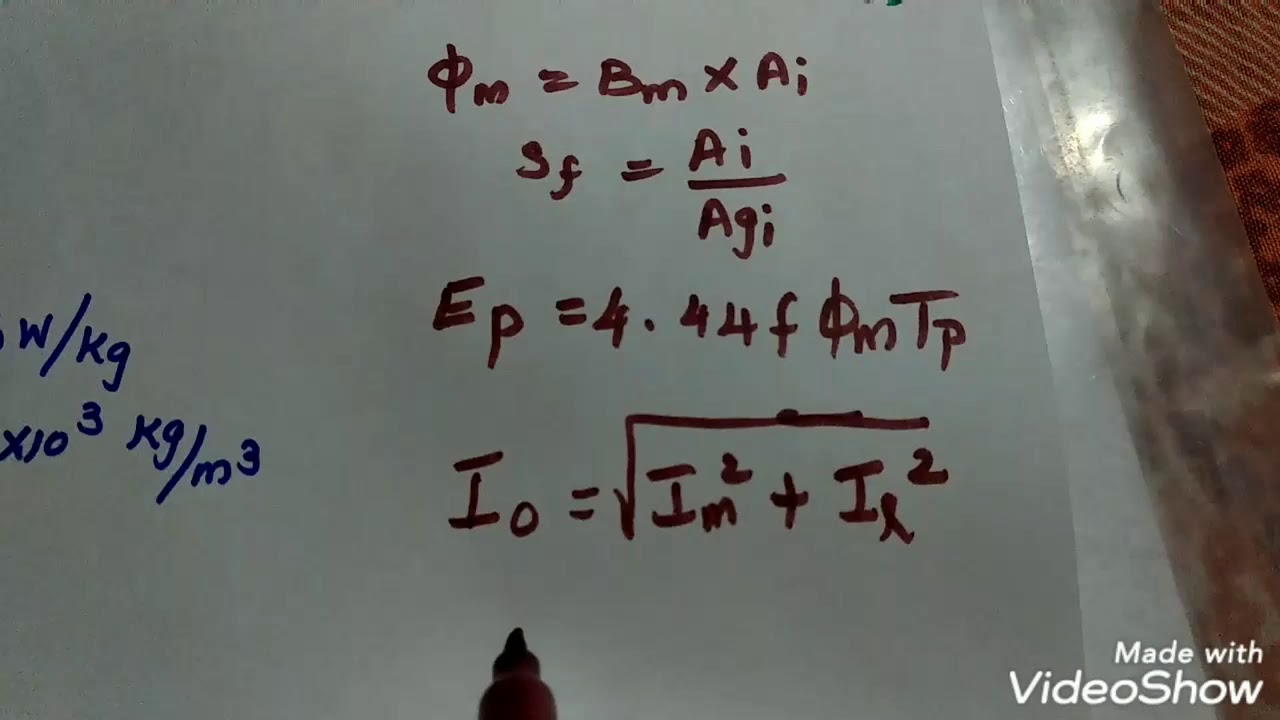 ϕm = Bm × Ai
Sf = Ai / Agi
Ep = 4.44 f ϕm Tp
I0 = √(Im² + Il²)
W/kg
×10³ kg/m³
Made with
VideoShow